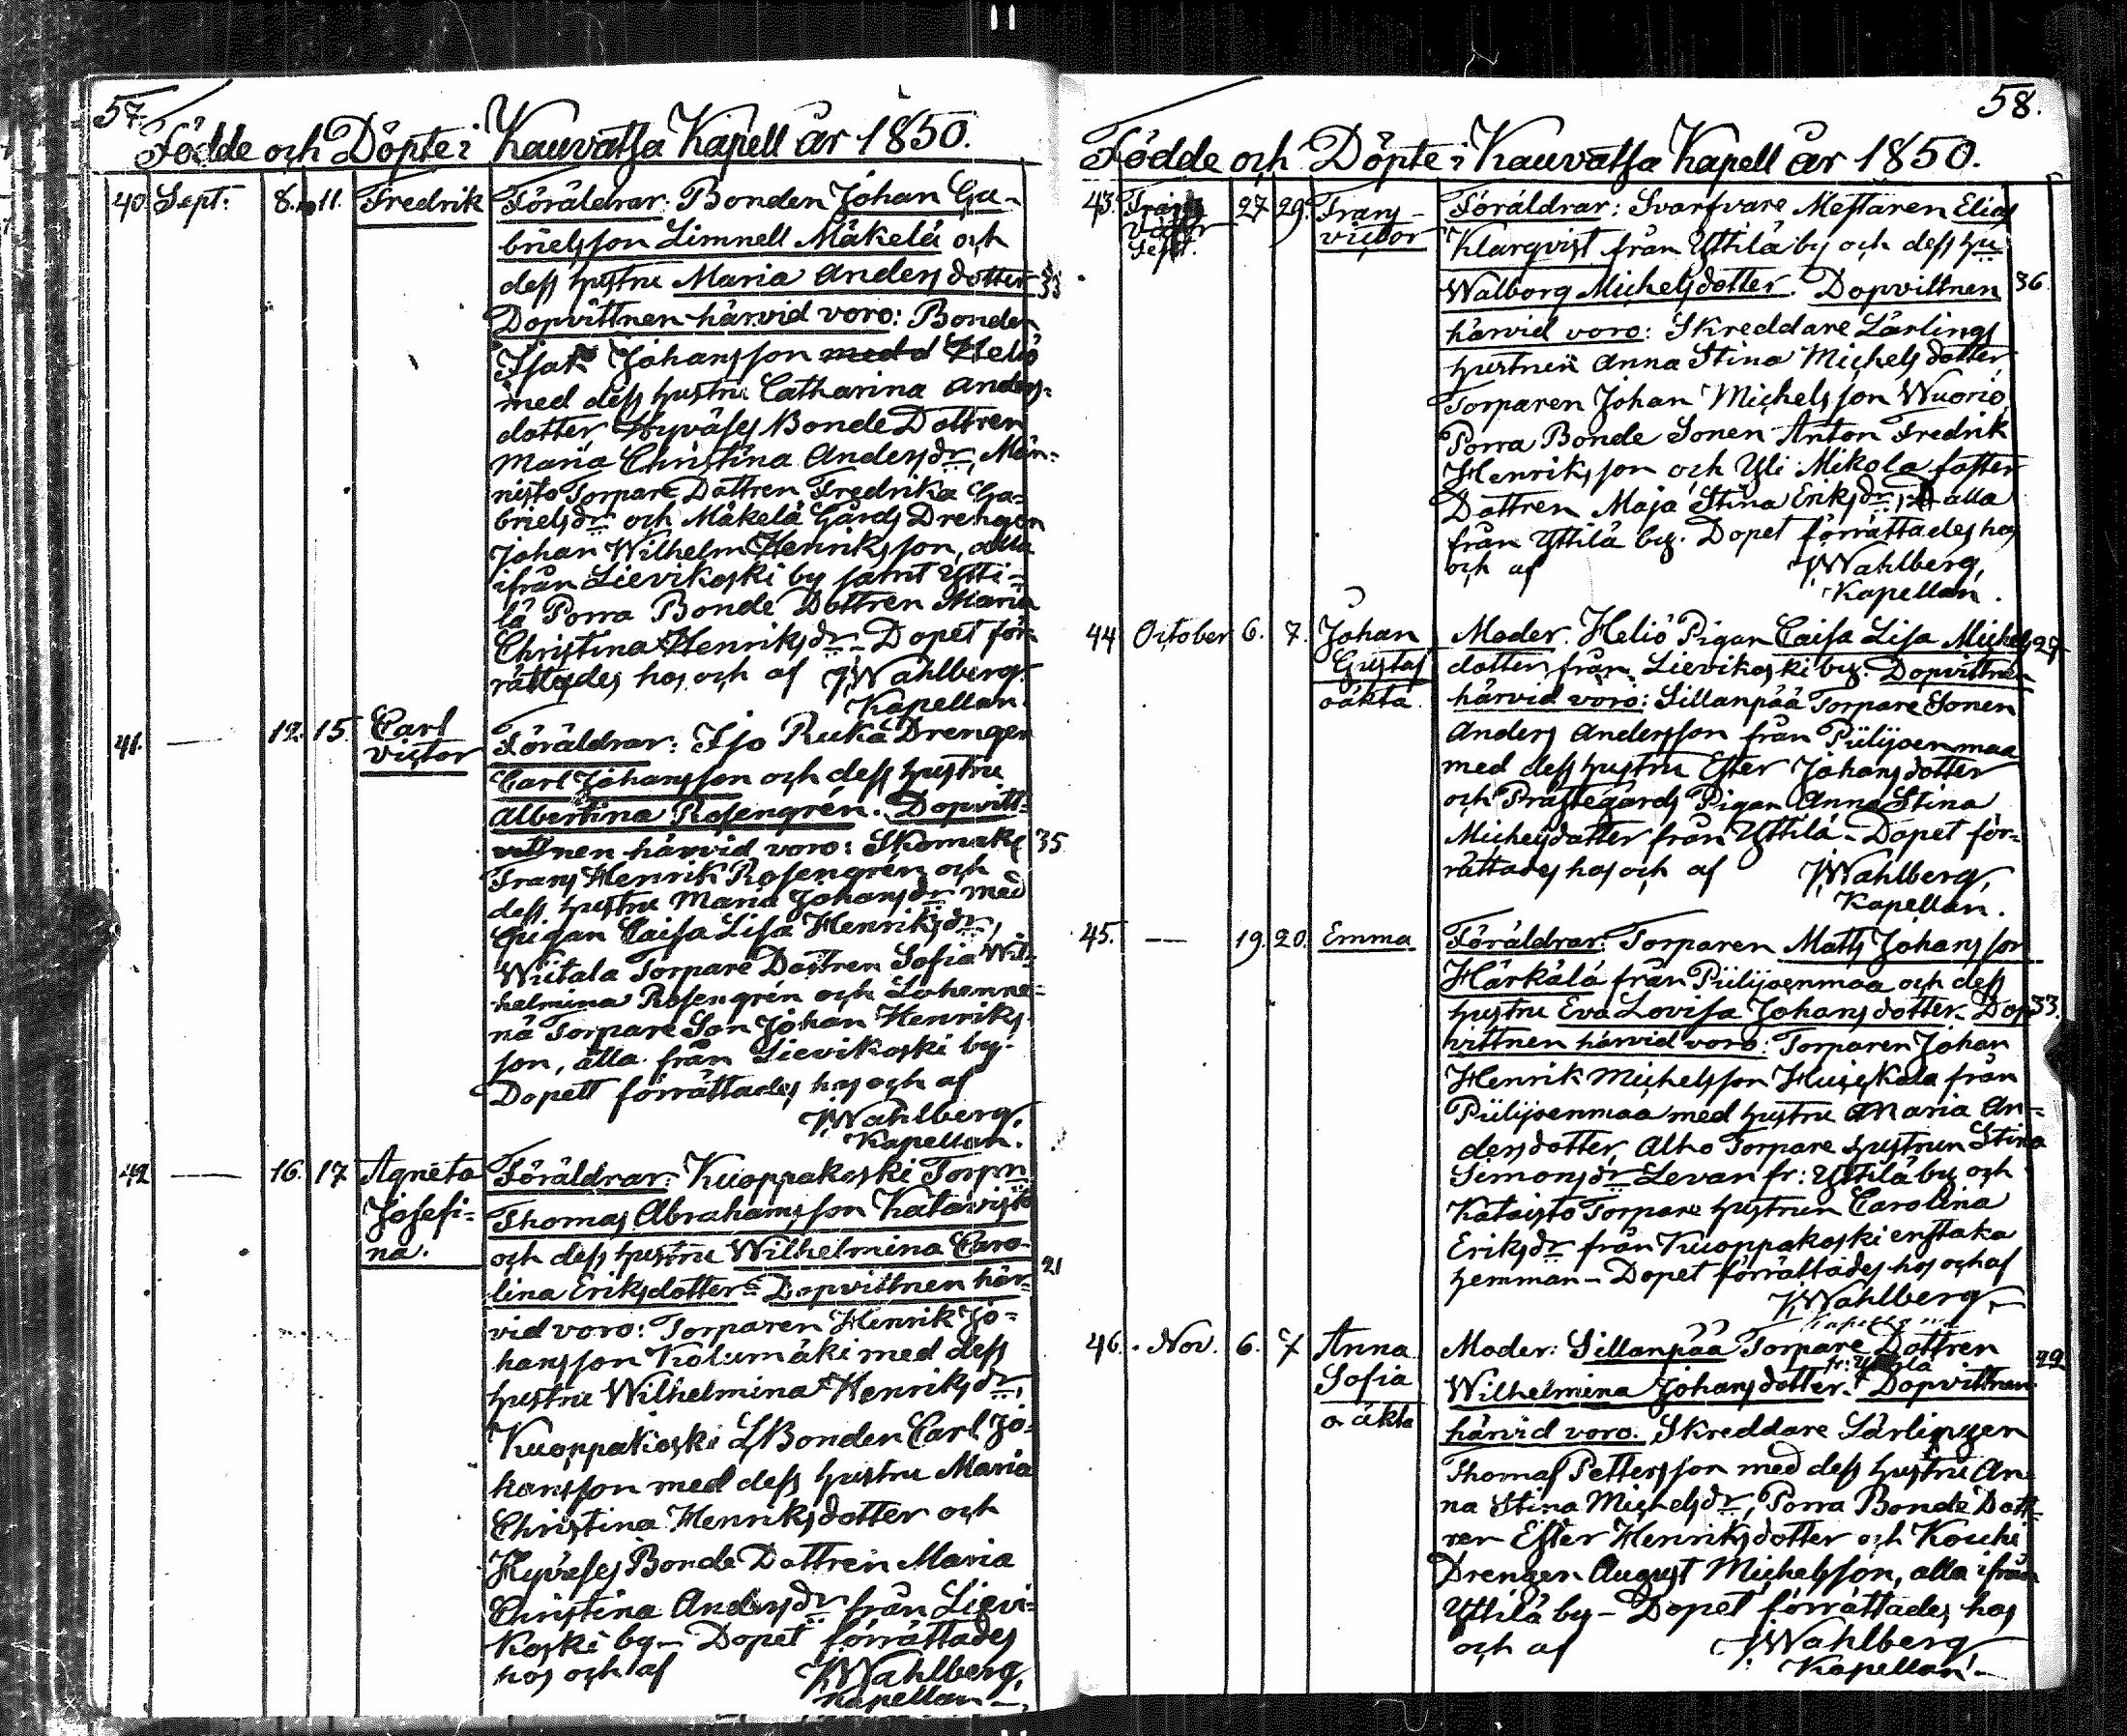 57.
Födde och Döpte i Kauvatsa Kapell år 1850.
40. Sept. 8. 11. Fredrik Föräldrar: Bonden Johan Ga-
brielsson Limnell Mäkelä och
dess hustru Maria Andersdotter 33
Dopvittnen härvid voro: Bonden
Isak Johansson Heliö
med dess hustru Catharina Anders-
dotter Hyväses Bonde Dottren
Maria Christina Andersdr, Män-
nistö Torpare Dottren Fredrika Ga-
brielsdr och Mäkelä Gårds Drengen
Johan Wilhelm Henriksson, alla
ifrån Lievikoski by samt Ytti-
lä Porra Bonde Dottren Maria
Christina Henriksdr. Dopet för-
rättades hos och af JWahlberg.
Kapellan.
41. — 12. 15. Carl Victor Föräldrar: Iso Rukä Drengen
Carl Johansson och dess hustru
Albertina Rosengrén. Dopvitt-
nen härvid voro: Skomak 35
Frans Henrik Rosengrén och
dess hustru Maria Johansdr med
Gigan Caisa Lisa Henriksdr,
Wiitala Torpare Dottren Sofia Wil-
helmina Rosengrén och Lohenne-
nä Torpare Son Johan Henriks-
son, alla från Lievikoski by.
Dopett förrättades hos och af
JWahlberg,
Kapellan.
42 — 16. 17 Agneta Josefi-
na. Föräldrar: Kuoppakoski Torpn
Thomas Abrahamsson Katavisto
och dess hustru Wilhelmina Caro-
lina Eriksdotter - Dopvittnen här- 21
vid voro: Torparen Henrik Jo-
hansson Kolumäki med dess
hustru Wilhelmina Henriksdr,
Kuoppakoski LBonden Carl Jo-
hansson med dess hustru Maria
Christina Henriksdotter och
Hyväses Bonde Dottren Maria
Christina Andersdr från Lievi-
koski by - Dopet förrättades
hos och af JWahlberg,
Kapellan -
58.
Födde och Döpte i Kauvatsa Kapell år 1850.
43. Sept. 27 29. Frans
Victor Föräldrar: Svarfvare Mestaren Elias
Klarqvist från Yttilä by och dess hu
Walborg Michelsdotter. Dopvittnen 36.
härvid voro: Skreddare Lärlings
hustrun Anna Stina Michelsdotter,
Torparen Johan Michelsson Wuorio,
Porra Bonde Sonen Anton Fredrik
Henriksson och Yli Mikola foster
Dottren Maja Stina Eriksdr, alla
från Yttilä by. Dopet förrättades hos
och af JWahlberg,
Kapellan.
44 October 6. 7. Johan
Gustaf
oäkta Moder: Heliö Pigan Caisa Lisa Michels 27
dotter från Lievikoski by. Dopvittnen
härvid voro: Sillanpää Torpare Sonen
Anders Andersson från Piilijoenmaa
med dess hustru Ester Johansdotter
och Prästegårds Pigan Anna Stina
Michelsdotter från Yttilä - Dopet för-
rättades hos och af JWahlberg,
Kapellan.
45. — 19. 20. Emma Föräldrar: Torparen Matts Johansson
Härkälä från Piilijoenmaa och dess
hustru Eva Lovisa Johansdotter. Dop 33.
vittnen härvid voro: Torparen Johan
Henrik Michelsson Huiskala från
Piilijoenmaa med hustru Maria An-
dersdotter, Alho Torpare hustrun Stina
Simonsdr Levan fr: Yttilä by och
Kataisto Torpare hustrun Carolina
Eriksdr från Kuoppakoski enstaka
hemman - Dopet förrättades hos och af
JWahlberg,
Kapellan
46. Nov. 6. 7 Anna
Sofia
oäkta Moder: Sillanpää Torpare Dottren
fr: Yttilä
Wilhelmina Johansdotter. Dopvittnen 29
härvid voro. Skreddare Lärlingen
Thomas Pettersson med dess hustru An-
na Stina Michelsdr, Porra Bonde Dott-
ren Ester Henriksdotter och Koschi
Drengen August Michelsson, alla ifrån
Yttilä by - Dopet förrättades hos
och af JWahlberg
Kapellan -